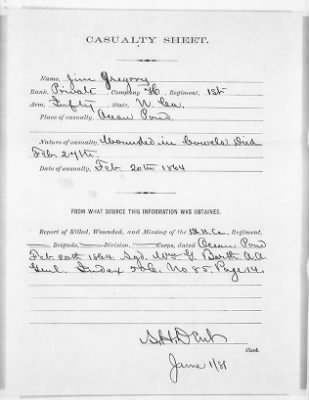 CASUALTY SHEET.
Name, Jim Gregory
Rank, Private Company "H", Regiment, 1st
Arm, Inf'ty State, N. Ca.
Place of casualty, Ocean Pond
Nature of casualty, Wounded in bowels. Died
Feb. 27th.
Date of casualty, Feb. 20th 1864
FROM WHAT SOURCE THIS INFORMATION WAS OBTAINED.
Report of Killed, Wounded, and Missing of the 1st N. Ca. Regiment,
Brigade, Division, Corps, dated Ocean Pond
Feb. 20th 1864. Sgd. Wm G. Barth A.A.
Genl. Index No. 85. Page 14.
Clerk.
June 1/81